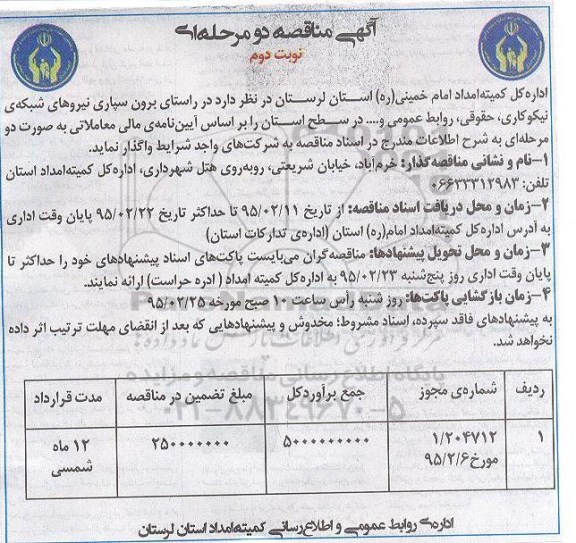 آگهی مناقصه دو مرحله‌ای
نوبت دوم
اداره‌کل کمیته‌امداد امام خمینی(ره) استان لرستان در نظر دارد در راستای برون سپاری نیروهای شبکه‌ی
نیکوکاری، حقوقی، روابط عمومی و.... در سطح استان را بر اساس آیین‌نامه‌ی مالی معاملاتی به صورت دو
مرحله‌ای به شرح اطلاعات مندرج در اسناد مناقصه به شرکت‌های واجد شرایط واگذار نماید.
۱-نام و نشانی مناقصه‌گذار: خرم‌آباد، خیابان شریعتی، روبه‌روی هتل شهرداری، اداره‌کل کمیته‌امداد استان
تلفن: ۰۶۶۳۳۳۱۲۹۸۳
۲-زمان و محل دریافت اسناد مناقصه: از تاریخ ۹۵/۰۲/۱۱ تا حداکثر تاریخ ۹۵/۰۲/۲۲ پایان وقت اداری
به آدرس اداره‌کل کمیته‌امداد امام(ره) استان (اداره‌ی تدارکات استان)
۳-زمان و محل تحویل پیشنهادها: مناقصه‌گران می‌بایست پاکت‌های اسناد پیشنهادهای خود را حداکثر تا
پایان وقت اداری روز پنج‌شنبه ۹۵/۰۲/۲۳ به اداره‌کل کمیته امداد ( ادره حراست) ارائه نمایند.
۴-زمان بازگشایی پاکت‌ها: روز شنبه رأس ساعت ۱۰ صبح مورخه ۹۵/۰۲/۲۵
به پیشنهادهای فاقد سپرده، اسناد مشروط؛ مخدوش و پیشنهادهایی که بعد از انقضای مهلت ترتیب اثر داده
نخواهد شد.
پایگاه اطلاع رسانی مناقصه و مزایده
۰۲۱-۸۸۳۴۹۶۷۰-۵
ردیف شماره‌ی مجوز جمع برآوردکل مبلغ تضمین در مناقصه مدت قرارداد
۱ ۱/۲۰۴۷۱۲ ۵۰۰۰۰۰۰۰۰۰ ۲۵۰۰۰۰۰۰۰ ۱۲ ماه
مورخ۹۵/۲/۶ شمسی
اداره‌ی روابط عمومی و اطلاع‌رسانی کمیته‌امداد استان لرستان